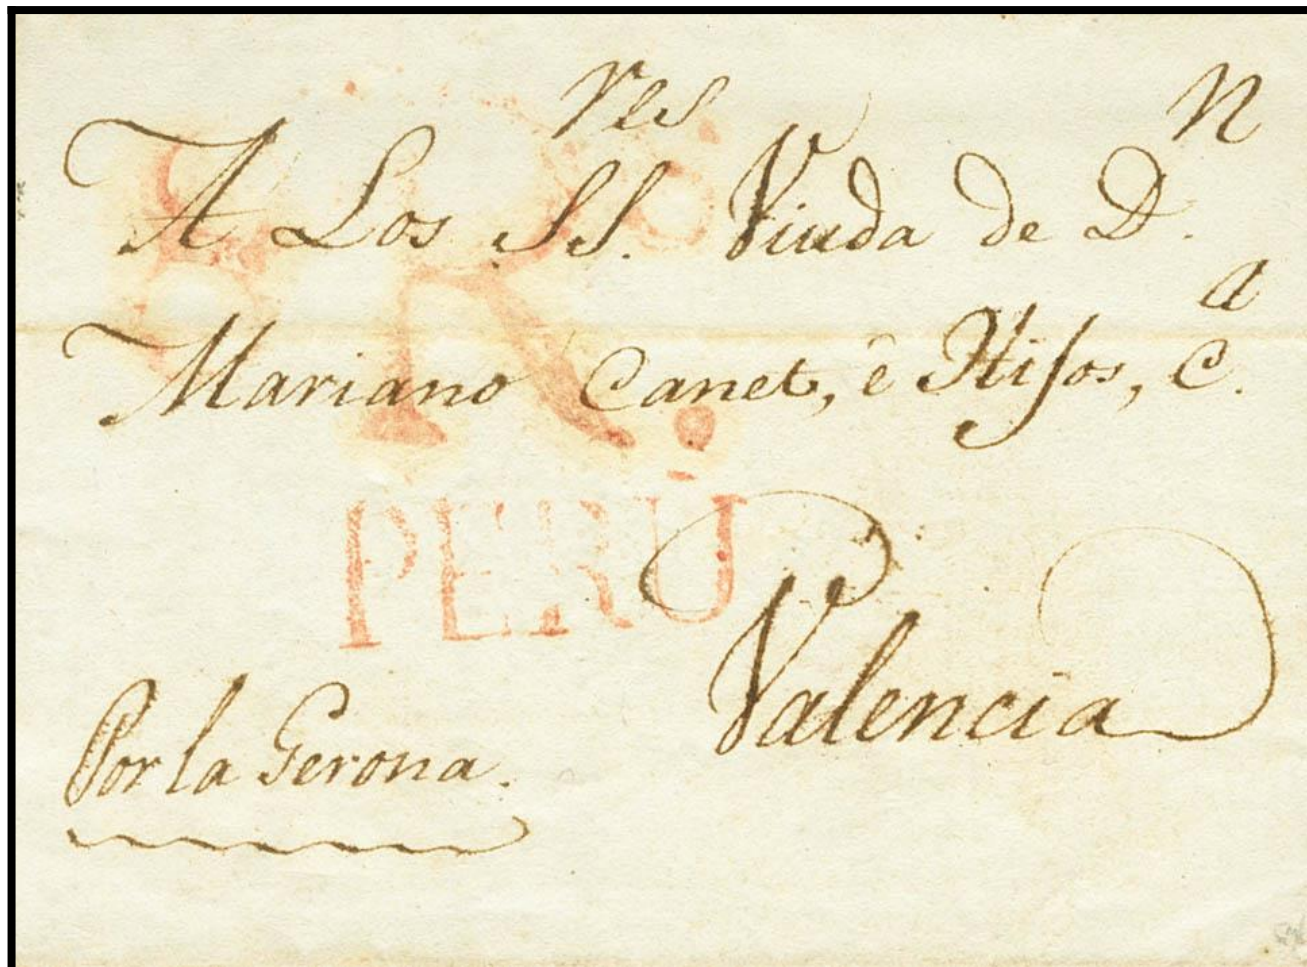 A Los SS.res Viuda de D.n
Mariano Canet, è Hijos, C.a
R.
PERÙ
Valencia
Por la Gerona.